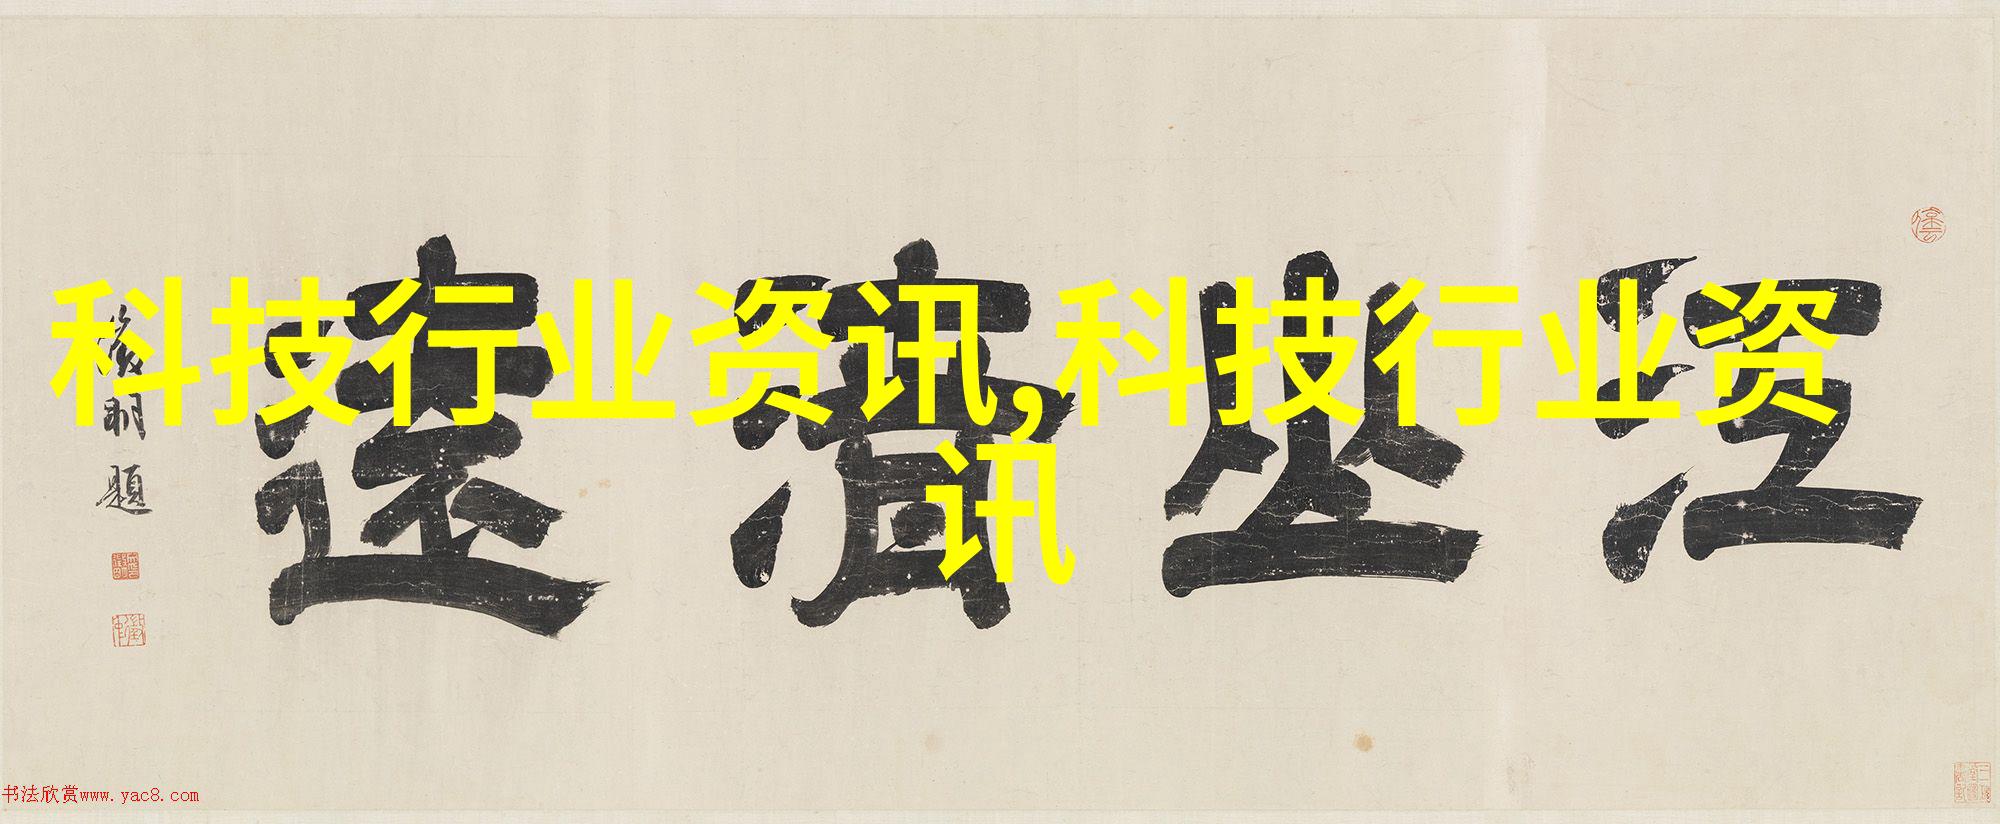 科技行业资讯,科技行业资
讯
江山清遠
明題
书法欣赏www.yac8.com